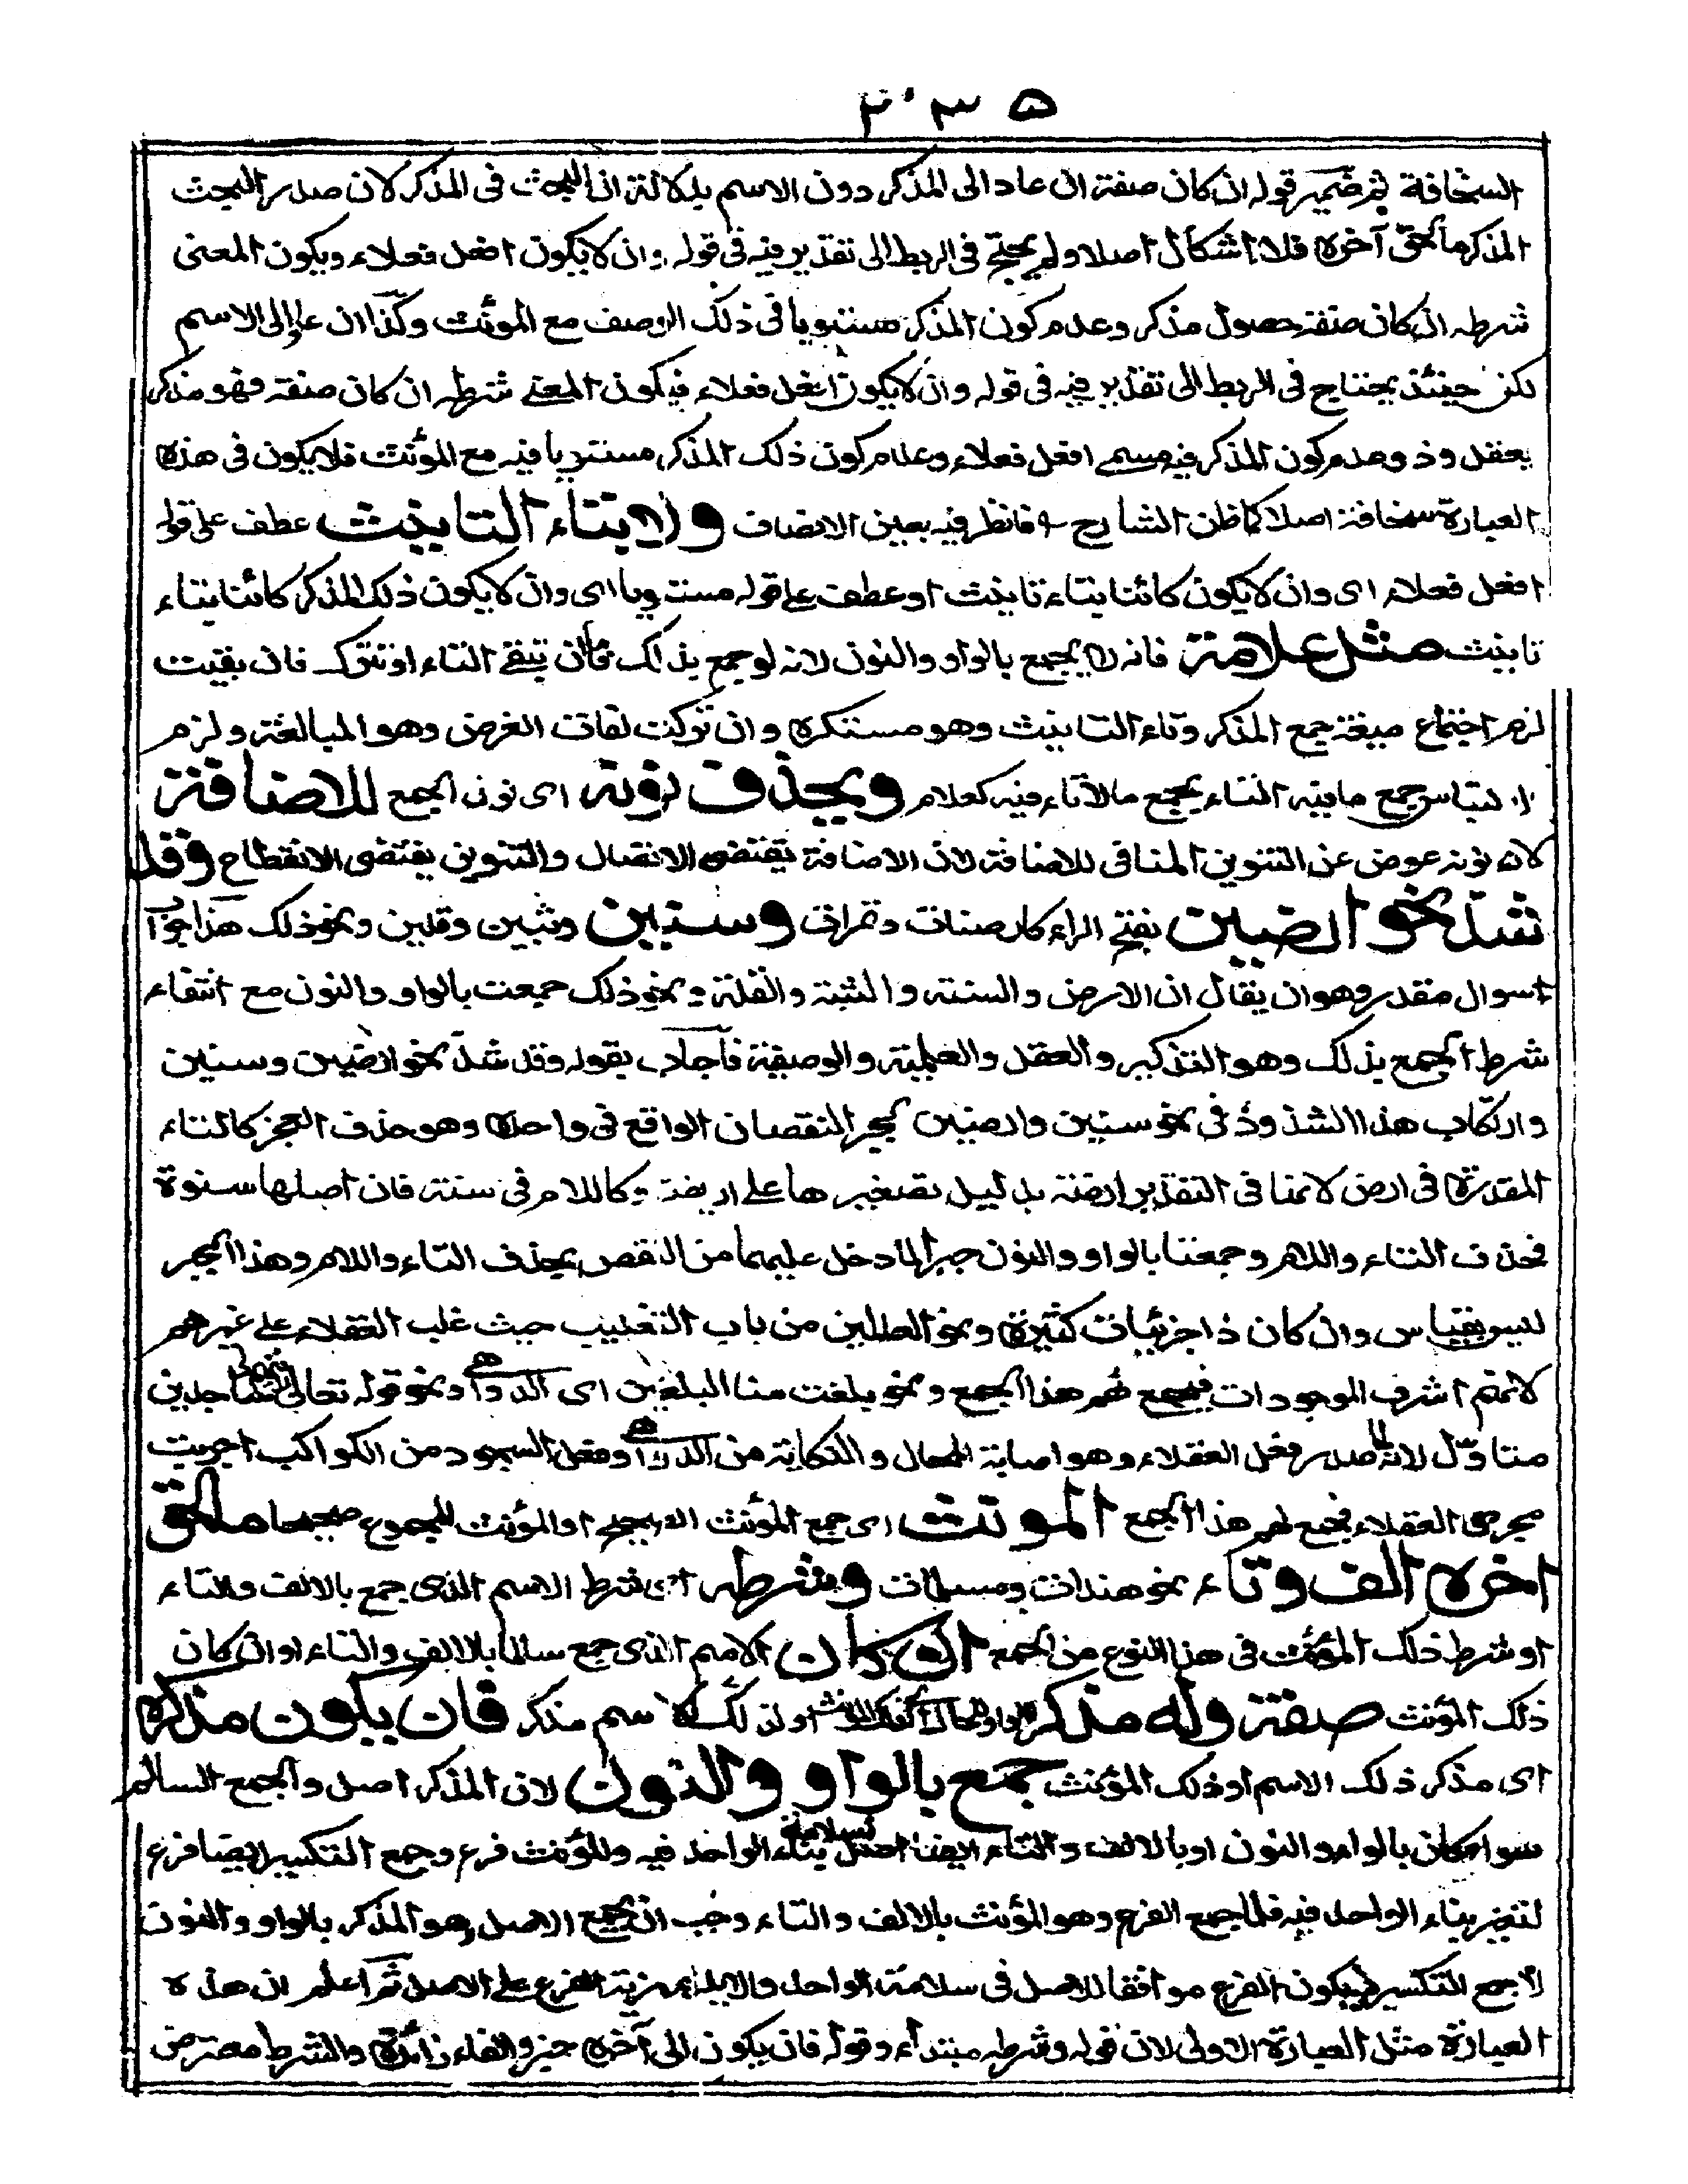 ٢٠٣٥
السخافة ثم ضمير قوله ان كان صفة ان عاد الى المذكر دون الاسم بدلالة ان البحث فى المذكر لان صدر البحث
المذكر ما لحق آخره فلا اشكال اصلا ولم يحتج فى الربط الى تقدير فيه فى قوله وان لا يكون افعل فعلاء ويكون المعنى
شرطه ان كان صفة حصول مذكر وعدم كون المذكر مستويا فى ذلك الوصف مع المونث وكذا ان عاد الى الاسم
لكن حينئذ يحتاج فى الربط الى تقدير فيه فى قوله وان لا يكون افعل فعلاء فيكون المعنى شرطه ان كان صفة فهو مذكر
يعقل وذو عدم كون المذكر فيه مسمى افعل فعلاء وعدم كون ذلك المذكر مستويا فيه مع المؤنث فلا يكون فى هذه
العبارة سخافة اصلا كما ظن الشارح فانظر فيه بعين الانصاف ولا بتاء التانيث عطف على قوله
افعل فعلاء اى وان لا يكون كائنا بتاء تانيث او عطف على قوله مستويا اى وان لا يكون ذلك المذكر كائنا بتاء
تانيث مثل علامة فانه لا يجمع بالواو والنون لانه لو جمع بذلك فان تبقى التاء او تترك فان بقيت
لزم اجتماع صيغة جمع المذكر وتاء التانيث وهو مستكره وان تركت لفات الغرض وهو المبالغة ولزم
التباس جمع ما فيه التاء بجمع ما لا تاء فيه كعلام ويحذف نونه اى نون الجمع للاضافة
لان نونه عوض عن التنوين المنافى للاضافة لان الاضافة تقتضى الاتصال والتنوين يقتضى الانقطاع وقد
شذ نحو ارضين بفتح الراء كارضات وتمرات وسنين وثبين وقلين ونحو ذلك هذا جواب
لسوال مقدر وهو ان يقال ان الارض والسنة والثبة والقلة ونحو ذلك جمعت بالواو والنون مع انتفاء
شرط الجمع بذلك وهو التذكير والعقل والعلمية والوصفية فاجاب بقوله وقد شذ نحو ارضين وسنين
وارتكاب هذا الشذوذ فى نحو سنين وارضين لجبر النقصان الواقع فى واحده وهو حذف العجز كالتاء
المقدرة فى ارض لانها فى التقدير ارضة بدليل تصغيرها على اريضة وكاللام فى سنة فان اصلها سنوة
فحذف التاء واللام وجمعتا بالواو والنون جبرا لما دخل عليهما من النقص بحذف التاء واللام وهذا الجبر
ليس بقياس وان كان ذا جزئيات كثيرة ونحو العالمين من باب التغليب حيث غلب العقلاء على غيرهم
لانهم اشرف الموجودات فيجمع لهم هذا الجمع ونحو بلغت منا البلغين اى الدواهى ونحو قوله تعالى رايتهم لى ساجدين
متاول لانه لما صدر فعل العقلاء وهو اصابة المحال والنكاية من الدواهى وفعل السجود من الكواكب اجريت
مجرى العقلاء فجمع لهم هذا الجمع المونث اى جمع المؤنث او المؤنث المجموع صحيحا ما لحق
اخره الف وتاء نحو هندات ومسلمات وشرطه اى شرط الاسم الذى جمع بالالف والتاء
او شرط ذلك المؤنث فى هذا النوع من الجمع ان كان الاسم الذى جمع سالما بالالف والتاء او ان كان
ذلك المؤنث صفة وله مذكر او لذلك الاسم مذكر فان يكون مذكره
اى مذكر ذلك الاسم او ذلك المؤنث جمع بالواو والنون لان المذكر اصل والجمع السالم
سواء كان بالواو والنون او بالالف والتاء ايضا اصل لسلامة بناء الواحد فيه والمؤنث فرع وجمع التكسير ايضا فرع
لتغير بناء الواحد فيه فلما جمع الفرع وهو المؤنث بالالف والتاء وجب ان يجمع الاصل وهو المذكر بالواو والنون
لا جمع التكسير ليكون الفرع موافقا للاصل فى سلامة الواحد والا يلزم مزية الفرع على الاصل ثم اعلم ان هذه
العبارة مثل العبارة الاولى لان قوله وشرطه مبتدأ وقوله فان يكون الى آخره خبر والفاء زائدة والشرط معترض